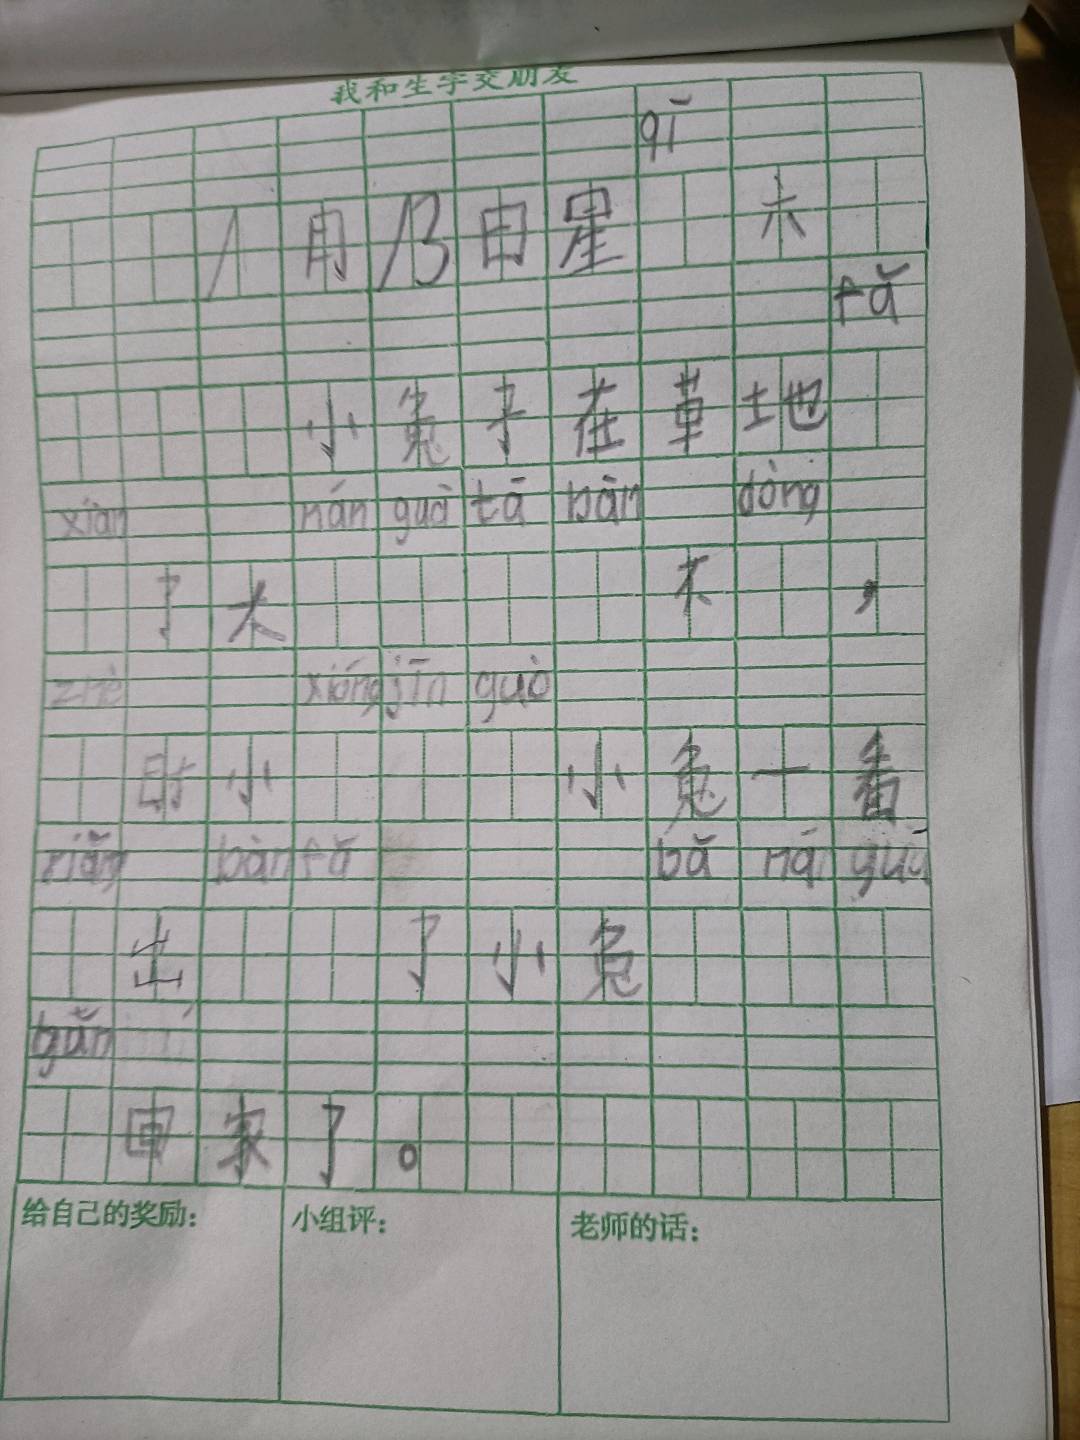 我和生字交朋友
qī
1月13日星 六
fǎ
小兔子在草地
xiàn nán guā tā bān dòng
了大 不 ,
zhè xióng jīn guò
时小 小兔一番
xiǎng bàn fǎ bǎ nán guā
出 了小兔
gǔn
回家了。
给自己的奖励：
小组评：
老师的话：